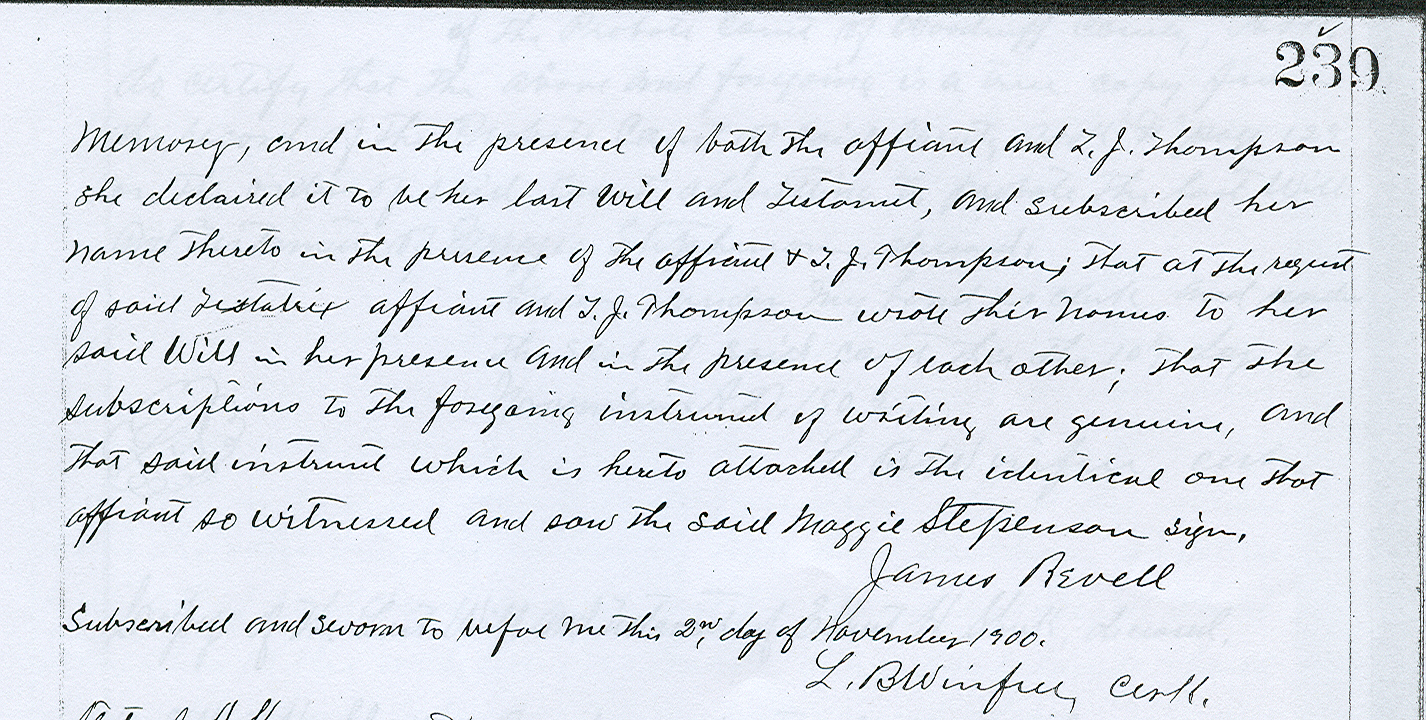 239
Memory, and in the presence of both the affiant and T. J. Thompson
she declaired it to be her last Will and Testamet, and subscribed her
name thereto in the presence of the affiant & T. J. Thompson; that at the request
of said Testatrix affiant and T. J. Thompson wrote their names to her
said Will in her presence and in the presence of each other; that the
subscriptions to the foregoing instrument of writing are genuine, and
that said instrument which is hereto attached is the identical one that
affiant so witnessed and saw the said Maggie Stepenson sign.
James Revell
Subscribed and sworn to before me this 2nd, day of November 1900.
L. B Winfrey Clerk.